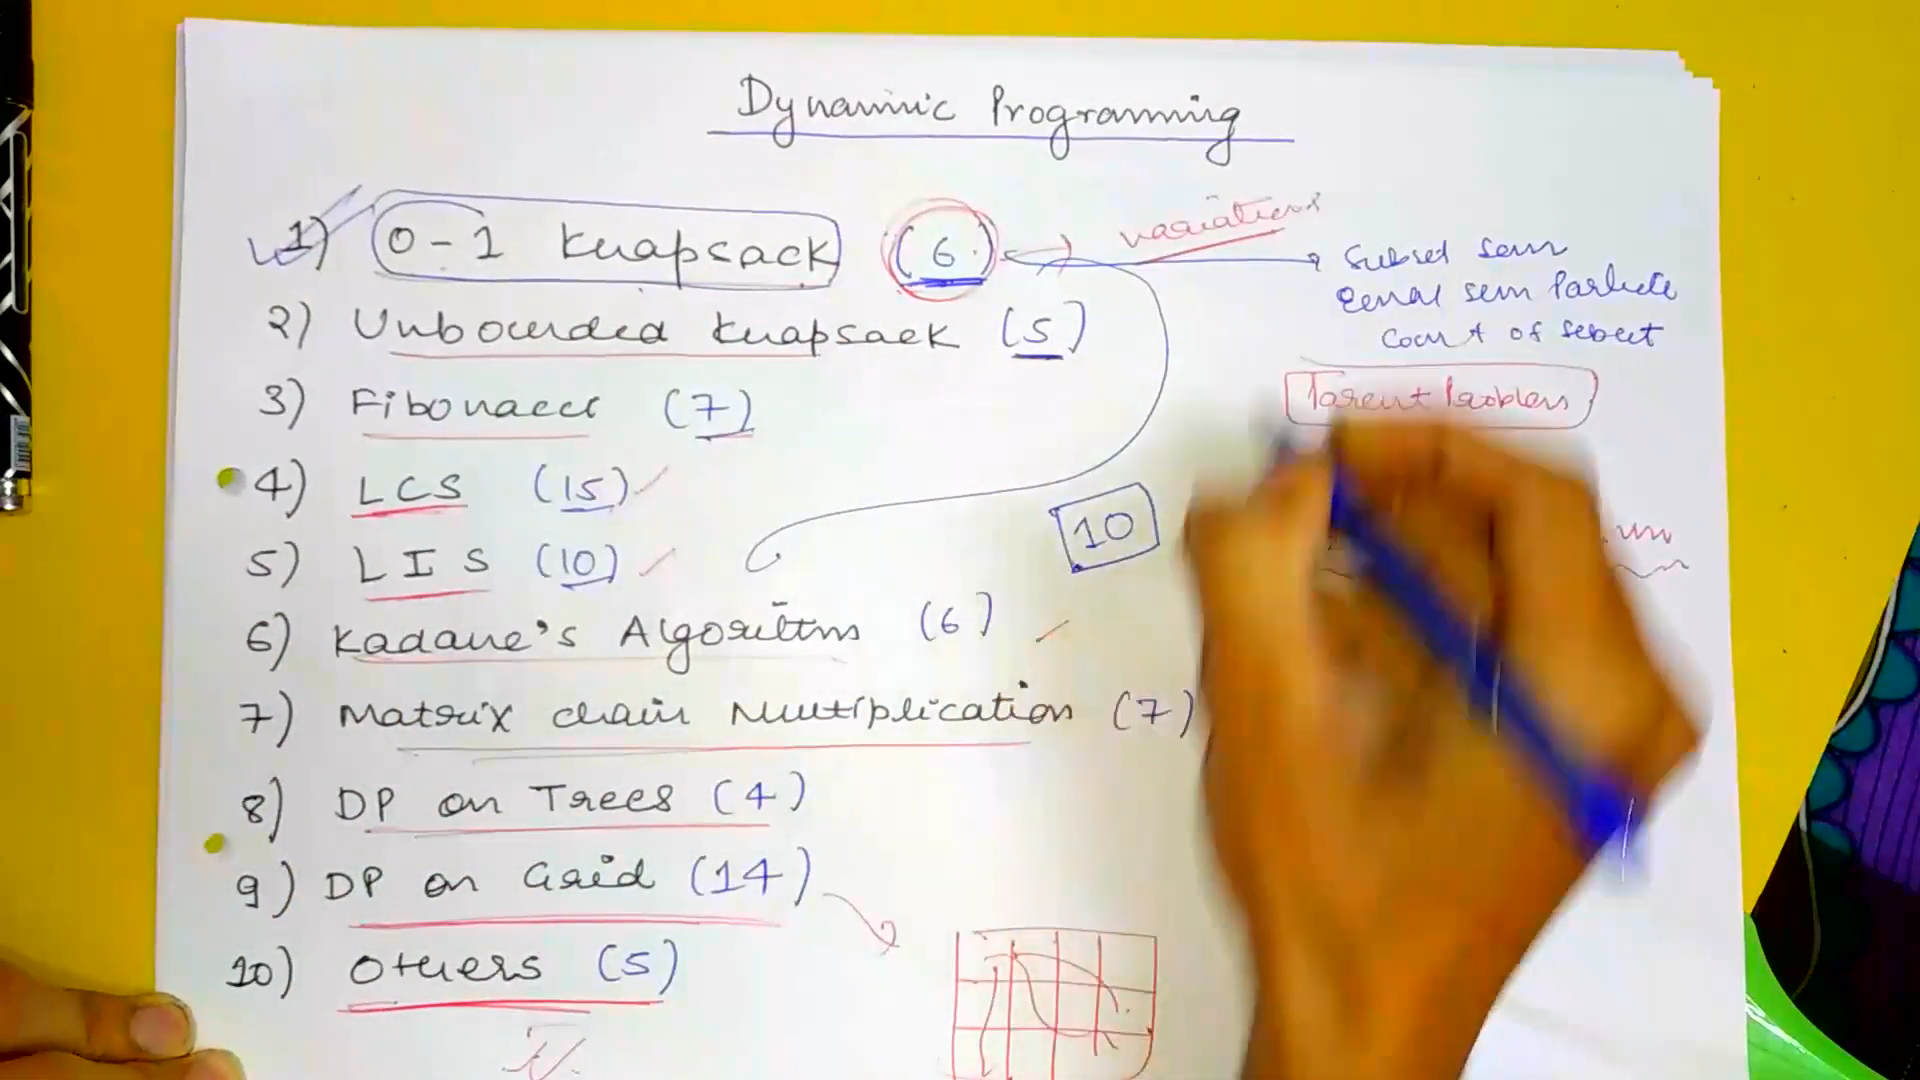 Dynamic Programming
1) 0-1 Knapsack (6)
variations
Subset sum
Equal sum
Count of subset
2) Unbounded Knapsack (5)
Parent Problem
3) Fibonacci (7)
4) LCS (15)
10
5) LIS (10)
6) Kadane's Algorithm (6)
7) Matrix chain Multiplication (7)
8) DP on Trees (4)
9) DP on Grid (14)
10) Others (5)